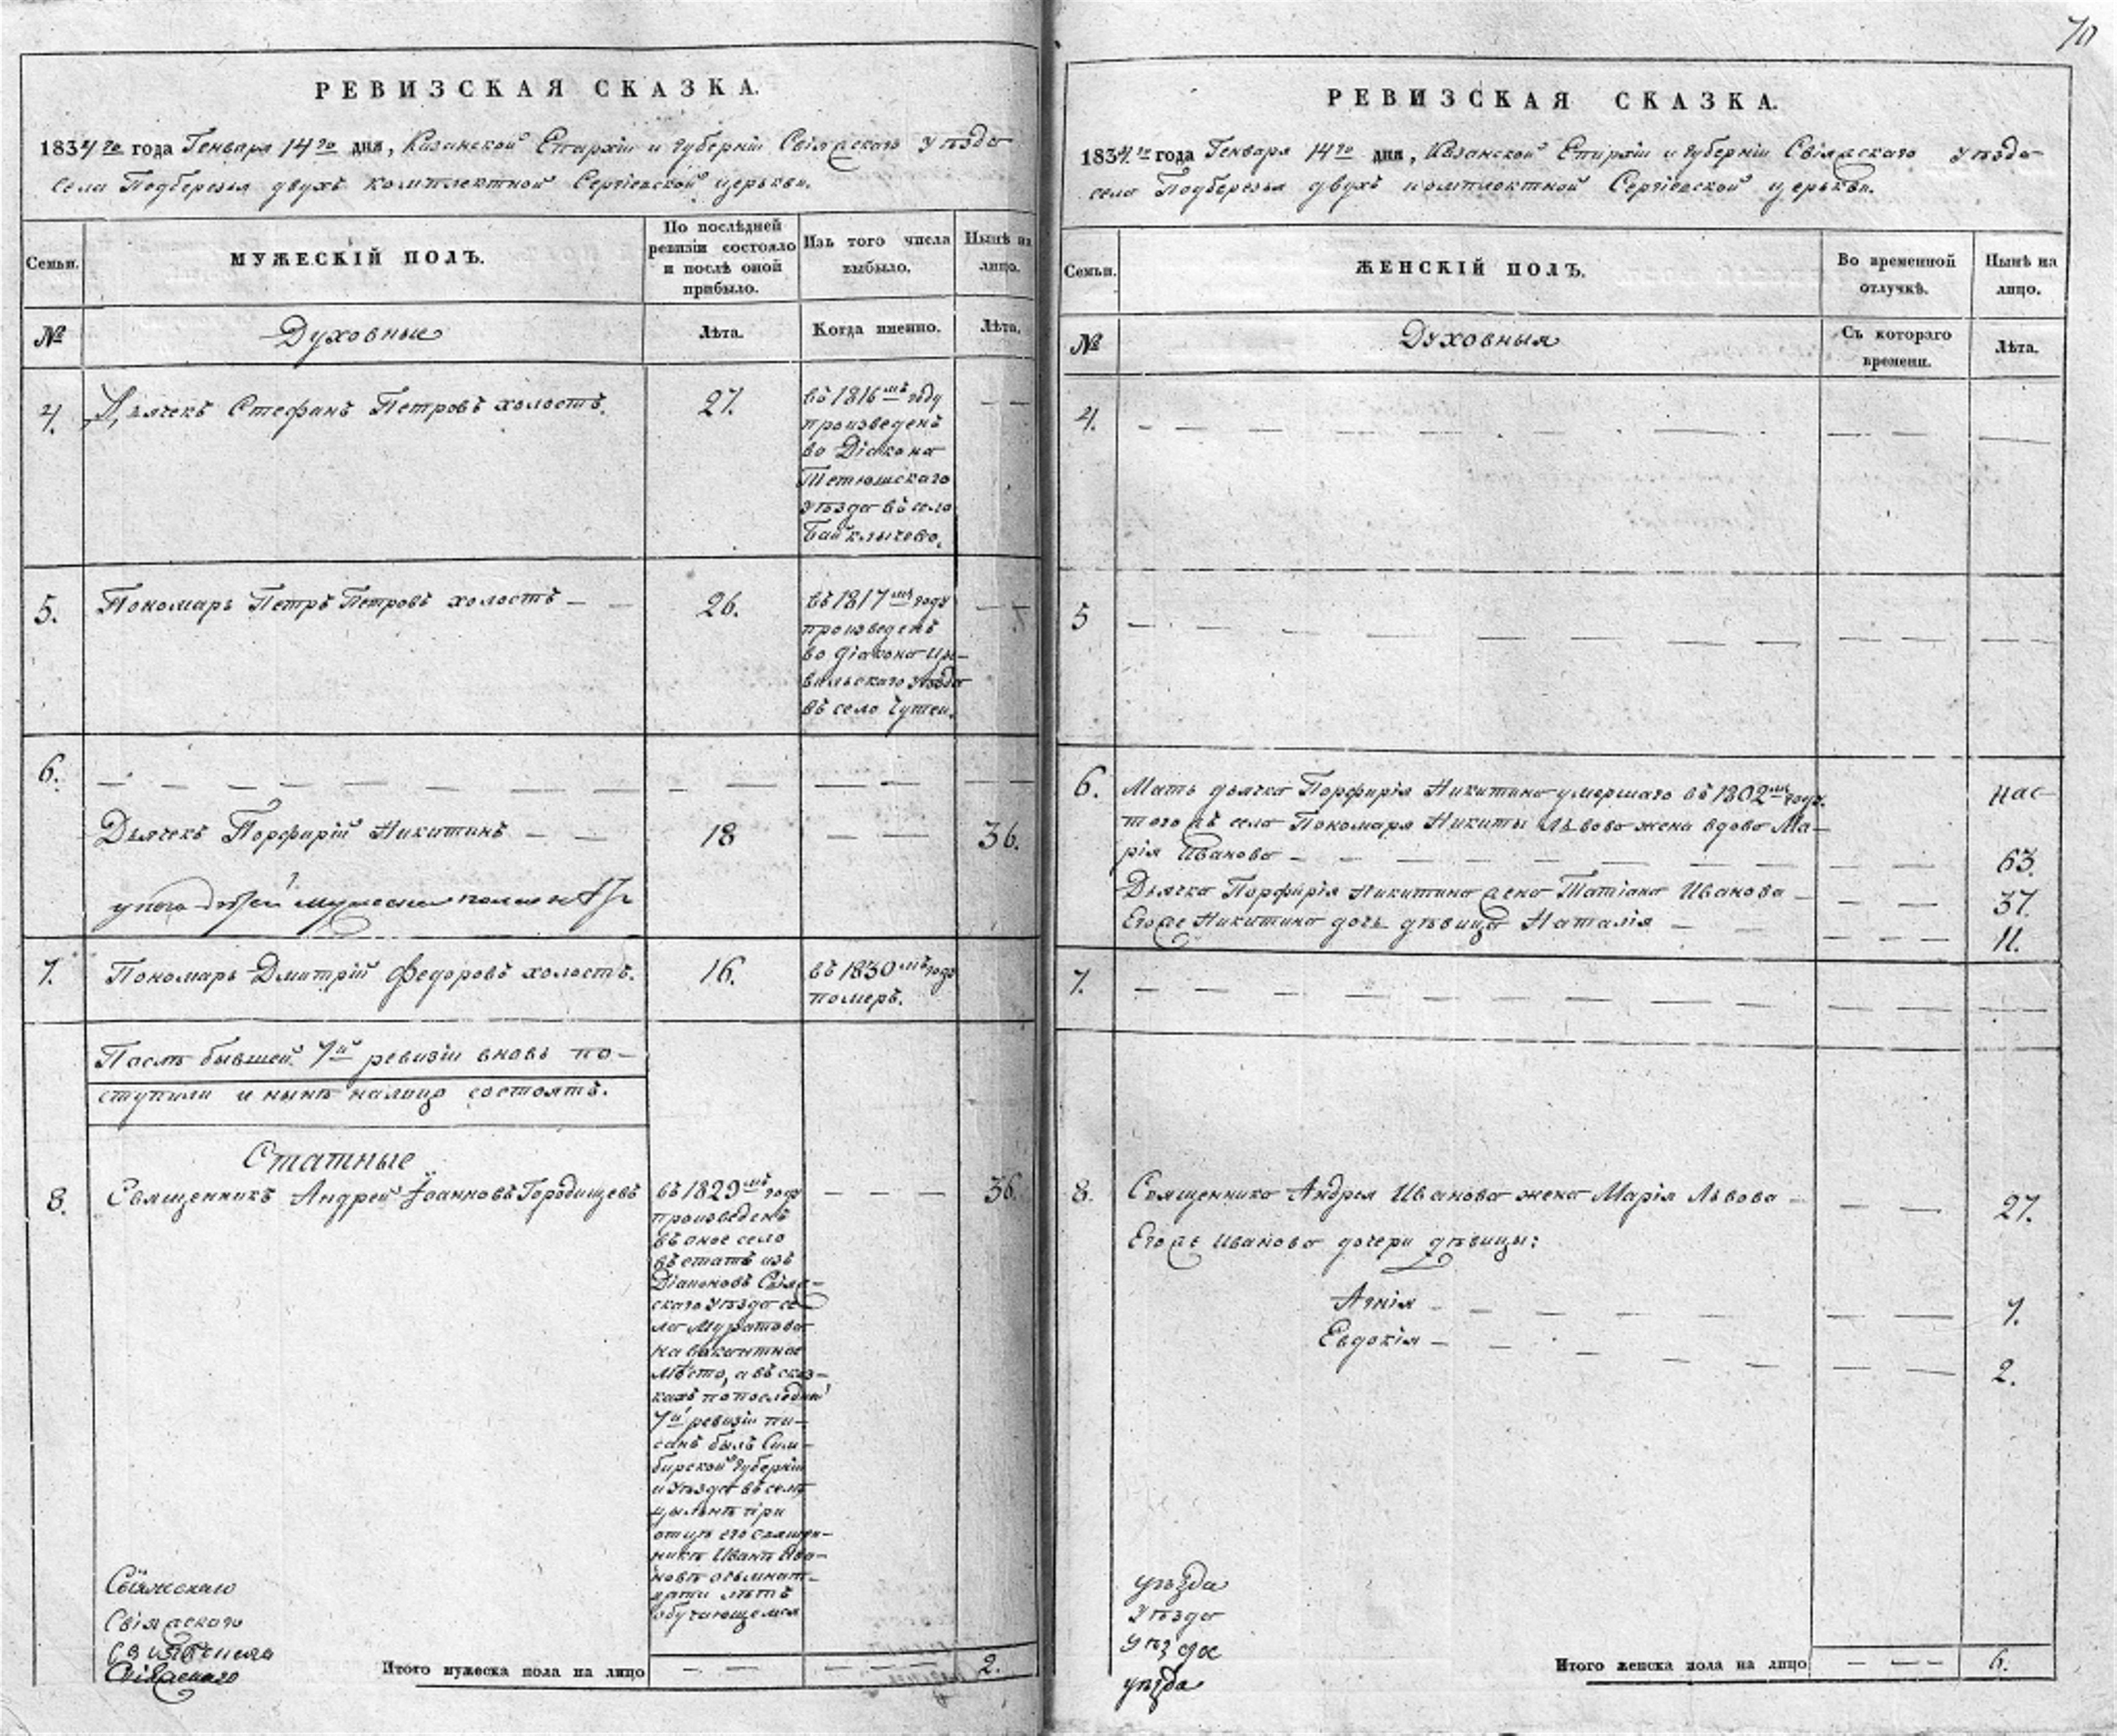 РЕВИЗСКАЯ СКАЗКА.
1834го года Генваря 14го дня, Казанской Епархіи и Губерніи Свіяжскаго уѣзда
села Подберезья двухъ комплектной Сергіевской церькви.
Семьи.
МУЖЕСКІЙ ПОЛЪ.
По послѣдней
ревизіи состояло
и послѣ оной
прибыло.
Изъ того числа
выбыло.
Нынѣ на
лицо.
№
Духовные
Лѣта.
Когда именно.
Лѣта.
4.
Дьячекъ Стефанъ Петровъ холостъ.
27.
въ 1816мъ году
произведенъ
во Діакона
Тетюшскаго
уѣзда въ село
Байклычево.
— —
5.
Пономарь Петръ Петровъ холостъ — —
26.
въ 1817мъ году
произведенъ
во діакона Ци-
вильскаго уѣзда
въ село Чутеи.
— —
6.
Дьячекъ Порфирій Никитинъ — —
18
— —
36.
7.
Пономарь Дмитрій Федоровъ холостъ.
16.
въ 1830мъ годе
померъ.
Послѣ бывшей 7й ревизіи вновь по-
ступили и нынѣ налицо состоятъ.
Статные
8.
Священникъ Андрей Іоанновъ Городищевъ
въ 1829мъ годе
произведенъ
въ оное село
въ статъ изъ
Діаконовъ Свіяж-
скаго уѣзда се-
ла Муратова
на вакантное
мѣсто, а въ сказ-
кахъ по последней
7й ревизіи пи-
санъ былъ Сим-
бирской Губерніи
и уѣзда въ селѣ
Цыльнѣ при
отцѣ его священ-
никѣ Иванѣ Ива-
новѣ осьмнат-
цати лѣтъ
обучающемся
— — —
36.
Свіяжскаго
Свіяжскаго
Свіяжскаго
Итого мужеска пола на лицо
— — —
— — —
2.
70
РЕВИЗСКАЯ СКАЗКА.
1834го года Генваря 14го дня, Казанской Епархіи и Губерніи Свіяжскаго уѣзда
села Подберезья двухъ комплектной Сергіевской церькви.
Семьи.
ЖЕНСКІЙ ПОЛЪ.
Во временной
отлучкѣ.
Нынѣ на
лицо.
№
Духовныя
Съ котораго
времени.
Лѣта.
4.
5
6.
Мать дьячка Порфирія Никитина умершаго въ 1802мъ годе
того жъ села Пономаря Никиты Львова жена вдова Ма-
рія Иванова —
63.
Дьячка Порфирія Никитина жена Татіана Иванова —
37.
Егоже Никитина дочь дѣвица Наталія —
11.
7.
8.
Священника Андрея Иванова жена Марія Львова —
27.
Егоже Иванова дочери дѣвицы:
Агнія —
7.
Евдокія —
2.
уѣзда
уѣзда
уѣзда
уѣзда
Итого женска пола на лицо
— — —
6.